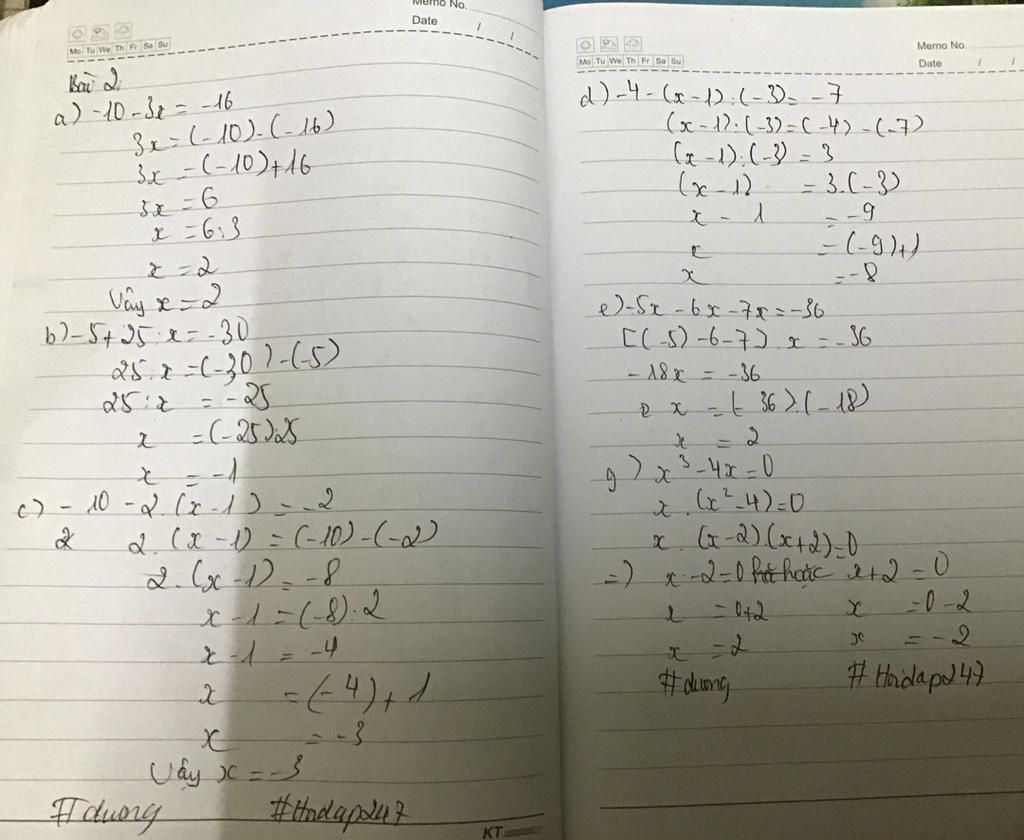 Memo No.
Date / /
Mo Tu We Th Fr Sa Su
Bài 2.
a) -10 - 3x = -16
3x = (-10) - (-16)
3x = (-10) + 16
3x = 6
x = 6:3
x = 2
Vây x = 2
b) -5 + 25 : x = -30
25 : x = (-30) - (-5)
25 : x = -25
x = (-25):25
x = -1
c) - 10 - 2.(x - 1) = -2
2. (x - 1) = (-10) - (-2)
2. (x - 1) = -8
x - 1 = (-8) : 2
x - 1 = -4
x = (-4) + 1
x = -3
Vậy x = -3
#duong #Hoidap247
KT
Memo No.
Date / /
Mo Tu We Th Fr Sa Su
d) -4 - (x - 1) : (-3) = -7
(x - 1) : (-3) = (-4) - (-7)
(x - 1) : (-3) = 3
(x - 1) = 3.(-3)
x - 1 = -9
x = (-9) + 1
x = -8
e) -5x - 6x - 7x = -36
[(-5) - 6 - 7] . x = -36
-18x = -36
x = (-36) : (-18)
x = 2
g) x³ - 4x = 0
x . (x² - 4) = 0
x . (x - 2) (x + 2) = 0
=) x - 2 = 0 hoặc x + 2 = 0
x = 0+2 x = 0 - 2
x = 2 x = -2
#duong #Hoidap247